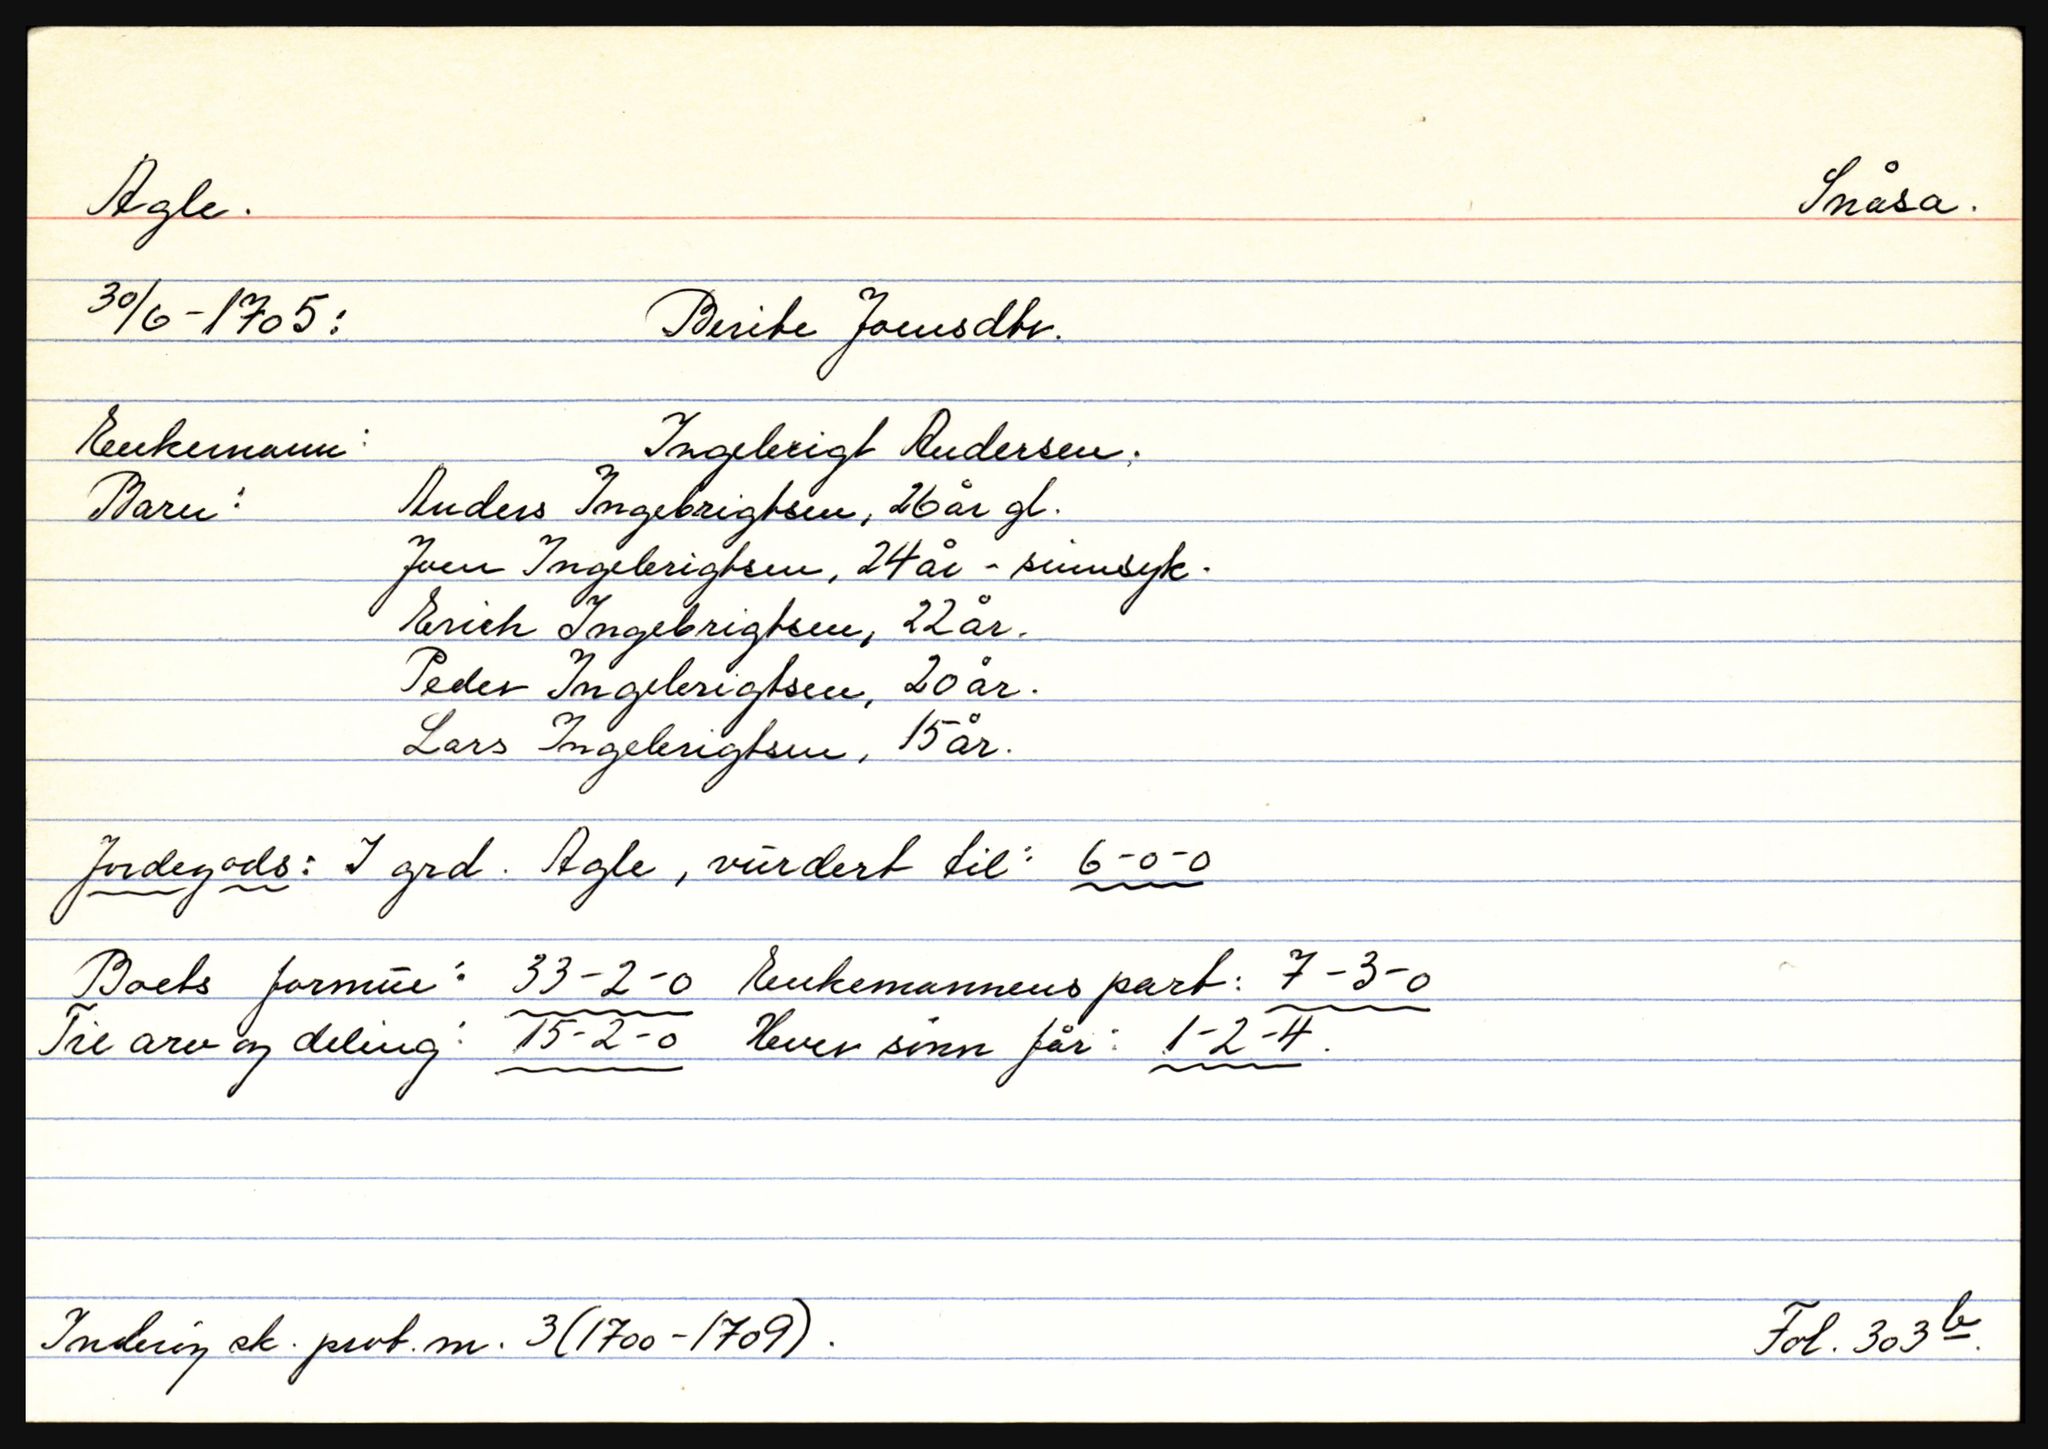 Agle. Snåsa.
30/6-1705: Berite Joensdtr.
Enkemann: Ingebrigt Andersen.
Barn: Anders Ingebrigtsen, 26 år gl.
Joen Ingebrigtsen, 24 år - sinnsyk.
Erich Ingebrigtsen, 22 år.
Peder Ingebrigtsen, 20 år.
Lars Ingebrigtsen, 15 år.
Jordegods: I grd. Agle, vurdert til: 6-0-0
Boets formue: 33-2-0 Enkemannens part: 7-3-0
Til arv og deling: 15-2-0 Hver sønn får: 1-2-4.
Inderøy sk. prot. nr. 3 (1700-1709). Fol. 303b.